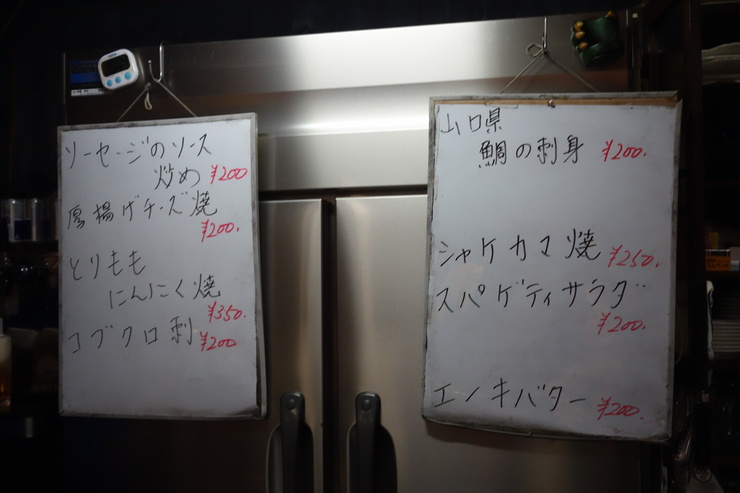 ソーセージのソース
炒め ¥200
厚揚げチーズ焼
¥200.
とりもも
にんにく焼
¥350.
コブクロ刺 ¥200
山口県
鯛の刺身 ¥200.
シャケカマ焼 ¥250.
スパゲティサラダ
¥200.
エノキバター ¥200.